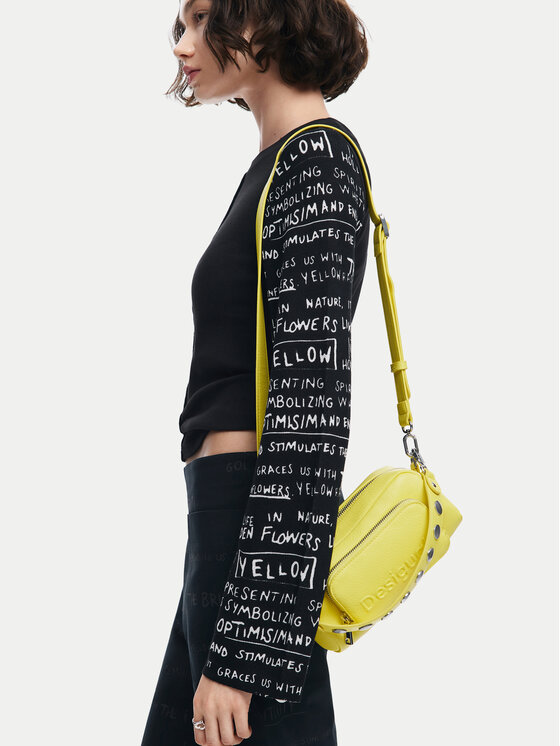 ELLOW
PRESENTING SPIRIT
SYMBOLIZING W
OPTIMISIM AND EN
AND STIMULATES THE
GRACES US WITH T
. YELLOW
IN NATURE, I
FLOWERS LI
ELLOW
SENTING SPI
MBOLIZING W
OPTIMISIM AND EN
D STIMULATES TH
GRACES US WITH
FLOWERS. YELLOW
LIFE IN NATURE,
DEN FLOWERS L
YELLOW
PRESENTING
SYMBOLIZING
OPTIMISIM AND
AND STIMULATES
T GRACES US WITH
Desigual